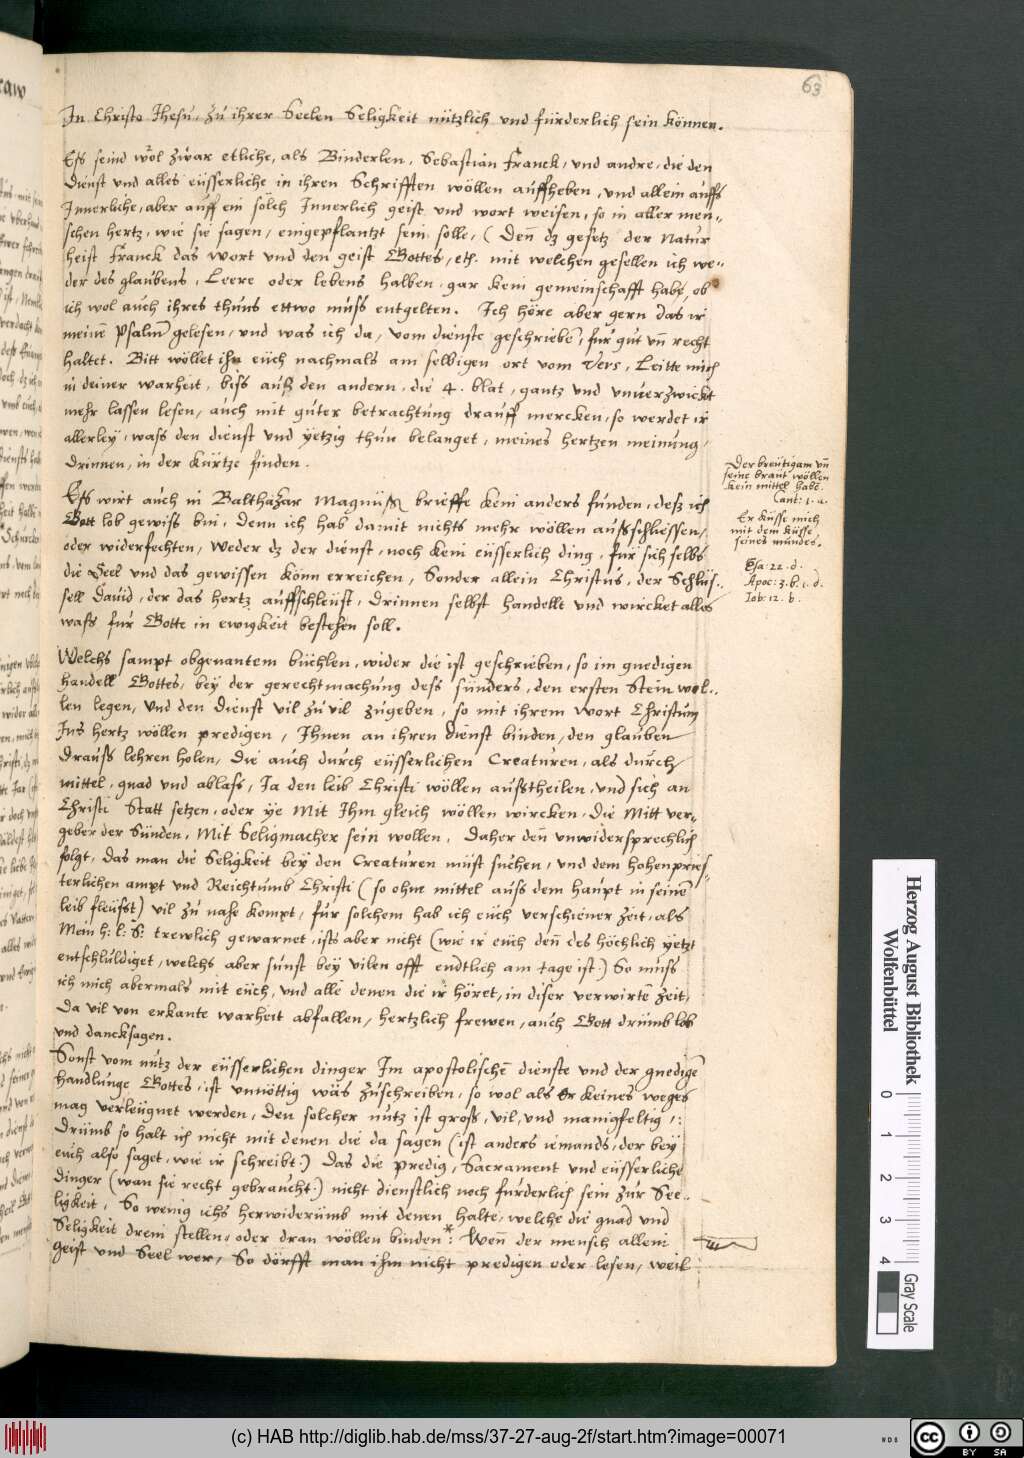 63
In Christo Jhesu, zů ihrer Seelen Seligkeit nützlich vnd fürderlich sein können.
Eſs seind wol zwar etliche, als Binderlen, Sebastian Franck, vnd andre, die den
dienst vnd alles eüsserliche in ihren Schrifften wöllen auffheben, vnd allein auffs
Innerliche, aber auff ein solch Innerlich geist vnd wort weisen, so in aller men„
schen hertz, wie sie sagen, eingepflantzt sein solle, (Den̄ dz gesetz der Natur
heist Franck das wort vnd den geist Gottes, etc. mit welchen gesellen ich we„
der des glaubens, Leere oder lebens halben, gar kein gemeinschafft habe, ob
ich wol auch ihres thuns ettwo můss entgelten. Ich höre aber gern das ir
meinē Psalm̄ gelesen, vnd was ich da, vom dienste geschriebē, für gůt vn̄ recht
haltet. Bitt wöllet ihn eüch nachmals am selbigen ort vom Vers, Leitte mich
in deiner warheit, biss auß den andern, die 4. blat, gantz vnd vnuerzwickt
mehr lassen lesen, auch mit gůter betrachtung drauff mercken, so werdet ir
allerleÿ, wass den dienst vnd ÿetzig thun belanget, meines hertzen meinung,
drinnen, in der kürtze finden.
Eſs wirt auch in Balthazar Magnüß brieffe kein anders funden, desz ich
Gott lob gewiss bin, Denn ich hab damit nichts mehr wöllen außschliessen,
oder widerfechten, Weder dz der dienst, noch kein eüsserlich ding, für sich selbs
die Seel vnd das gewissen könn erreichen, Sonder allein Christus, der Schlüs„
sell Dauid, der das hertz auffschleüst, drinnen selbst handellt vnd wircket alles
wass für Gotte in ewigkeit bestehen soll.
Welchs sampt obgenantem büchlen, wider die ist geschrieben, so im gnedigen
handell Gottes, beÿ der gerechtmachung dess sünders, den ersten Stein wol„
len legen, Vnd den dienst vil zů vil zugeben, so mit ihrem Wort Christum
Ins hertz wöllen predigen, Ihnen an ihren dienst binden, den glauben
drauss lehren holen, die auch durch eüsserlichen Creaturen, als durch
mittel, gnad vnd ablass, Ja den leib Christi wöllen außtheilen, vnd sich an
Christi Statt setzen, oder ÿe Mit Jhm gleich wöllen wircken, die Mitt ver„
geber der Sünden, Mit Seligmacher sein wollen, Daher den̄ vnwidersprechlich
folgt, das man die Seligkeit beÿ den Creaturen müst suchen, vnd dem hohenpries„
terlichen ampt vnd Reichtumb Christi (so ohne mittel auss dem haupt in seinē
leib fleüsst) vil zů nahe kompt, für solchem hab ich eüch verschiener zeit, als
Mein h: l: S: trewlich gewarnet, ists aber nicht (wie ir eüch den̄ des höchlich ÿetzt
entschüldiget, welchs aber sunst beÿ vilen offt endtlich am tage ist.) So můss
ich mich abermals mit eüch, vnd alle denen die ir höret, in diser verwirtē zeit,
da vil von erkante warheit abfallen, hertzlich frewen, auch Gott drumb lob
vnd dancksagen.
Sonst vom nutz der eüsserlichen dinger Im apostolischē dienste vnd der gnedigē
handlunge Gottes, ist vnnöttig wäs zůschreiben, so wol als Er keines weges
mag verleügnet werden, den solcher nutz ist gross, vil, vnd manigfeltig,:
Drümb so halt ich nicht mit denen die da sagen (ist anders iemands, der beÿ
eüch also saget, wie ir schreibt:) Das die predig, Sacrament vnd eüsserliche
dinger (wan sie recht gebraucht:) nicht dienstlich noch fürderlich sein zůr See„
ligkeit, So wenig ichs herwiderümb mit denen halte, welche die gnad vnd
Seligkeit drein stellen, oder dran wöllen binden*: Wen̄ der mensch allein
geist vnd Seel wer, So dörfft man ihm nicht predigen oder lesen, weil
Der breütigam vn̄
seine braut wöllen
kein mittel habē.
Cant: 1. a.
Er küsse mich
mit dem küsse
seines mundes.
Esa: 22. d.
Apoc: 3. b. c. d.
Iob: 12. b.
Herzog August Bibliothek
Wolfenbüttel
0 1 2 3 4
Gray Scale
(c) HAB http://diglib.hab.de/mss/37-27-aug-2f/start.htm?image=00071
WDB
cc BY SA